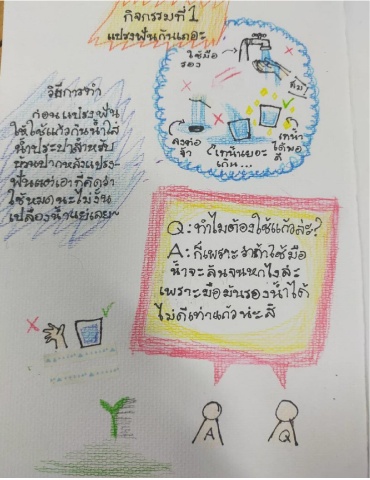 กิจกรรมที่ 1
แปรงฟันกันเถอะ
ใช้มือ
รอง
ดื่ม
ลงท่อ
จ้า
เทนั้นเยอะ
เกิน...
เทน้ำ
ได้พอ
ดี
วิธีการทำ
ก่อนแปรงฟัน
ให้ใช้แก้วก้นน้ำใส่
น้ำประปาสำหรับ
บ้วนปากหลังแปรง-
ฟันแต่เอาที่คิดว่า
ใช้หมดนะไม่งั้น
เปลืองน้ำแย่เลย~
Q: ทำไมต้องใช้แก้วล่ะ?
A: ก็เพราะว่าถ้าใช้มือ
น้ำจะล้นจนหกไงล่ะ
เพราะมือมันรองน้ำได้
ไม่ดีเท่าแก้วน่ะสิ
A
Q